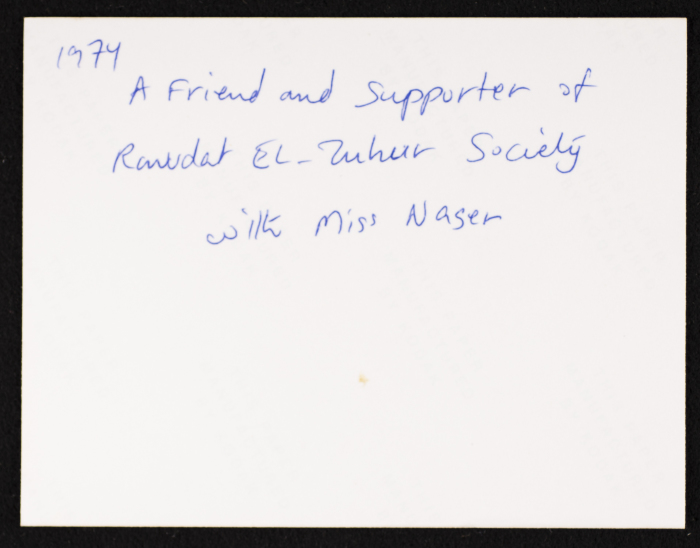 1974
A Friend and Supporter of
Rawdat EL-Zuhur Society
with Miss Naser